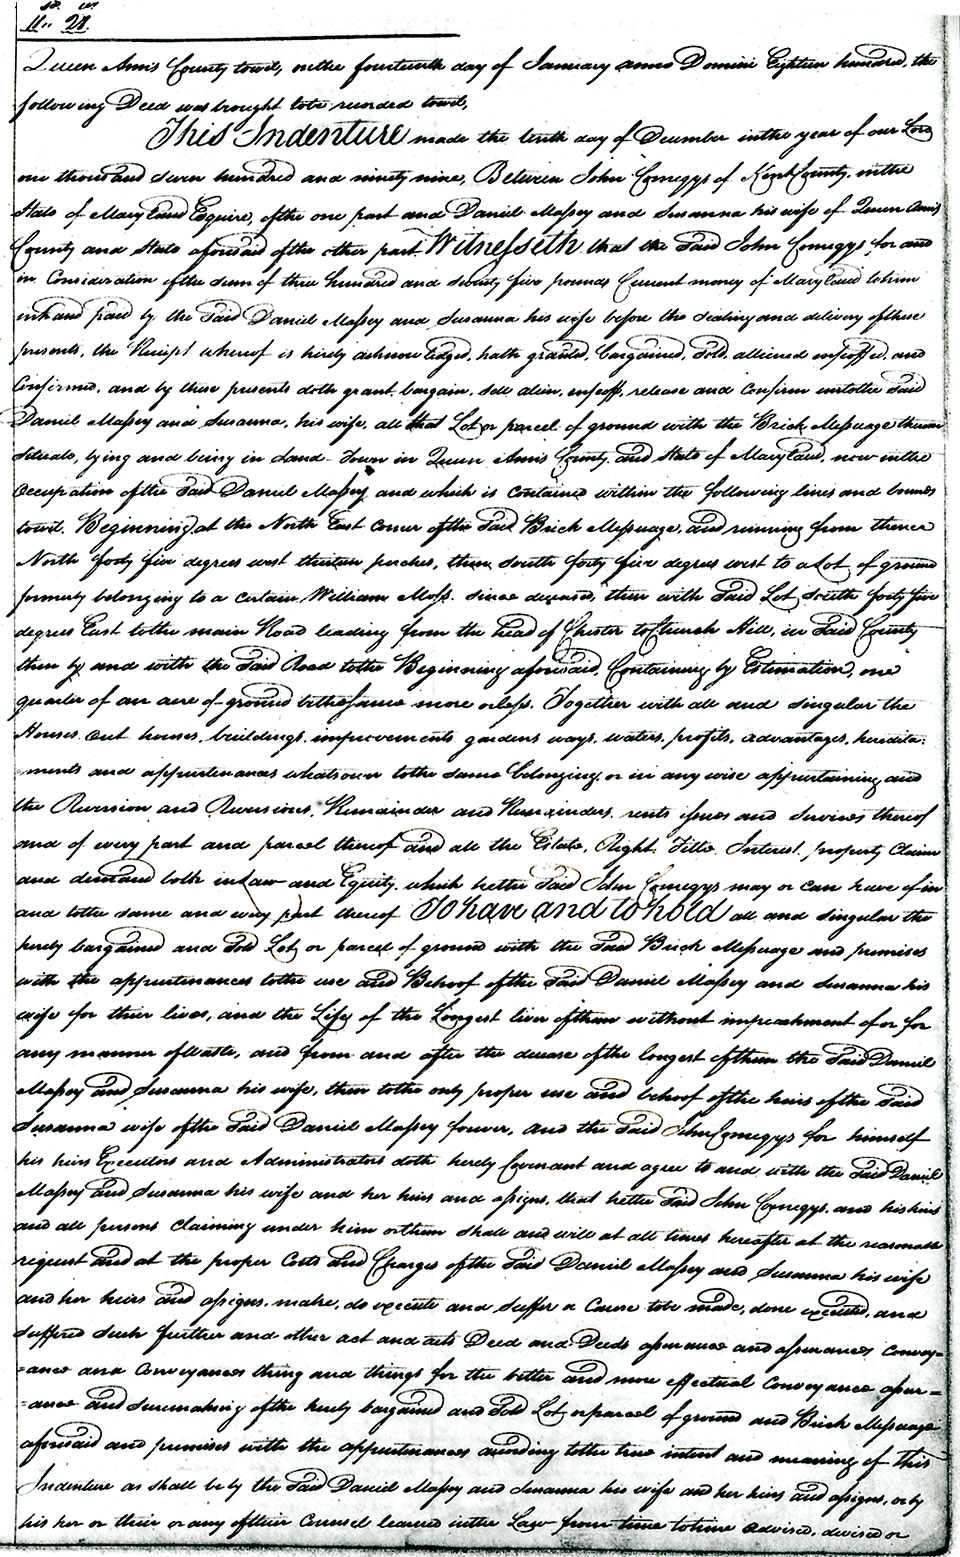 11.. 28.
Queen Anns County towit, on the fourteenth day of January anno Domini Eighteen hundred, the
following Deed was brought to be recorded towit,
This Indenture made the tenth day of December in the year of our Lord
one thousand seven hundred and ninety nine, Between John Comegys of Kent County in the
State of Maryland Esquire, of the one part and Daniel Massey and Susanna his wife of Queen Anns
County and State aforesaid of the other part. Witnesseth that the Said John Comegys for and
in Consideration of the sum of three hundred and seventy five pounds Current money of Maryland to him
in hand paid by the Said Daniel Massey and Susanna his wife before the Sealing and delivery of these
presents, the Receipt whereof is hereby acknowledged, hath granted, bargained, Sold, aliened enfeoffed, and
Confirmed, and by these presents doth grant, bargain, Sell alien, enfeoff, release and Confirm unto the Said
Daniel Massey and Susanna, his wife, all that Lot or parcel of ground with the Brick Messuage thereon
situate, lying and being in Land-Town in Queen Anns County and State of Maryland, now in the
Occupation of the Said Daniel Massey and which is Contained within the following lines and bounds
towit. Beginning at the North East Corner of the Said Brick Messuage, and running from thence
North forty five degrees west thirteen perches, then South forty five degrees west to a Lot of ground
formerly belonging to a certain William Moss. Since deceased, then with Said Lot South forty five
degrees East to the main Road leading from the head of Chester to Church Hill, in Said County
then by and with the Said Road to the Beginning aforesaid, Containing by Estimation, one
quarter of an acre of ground be the same more or less. Together with all and singular the
Houses, out houses, buildings, improvements gardens ways, waters, profits, advantages, heredita-
-ments and appurtenances whatsoever to the same belonging, or in any wise appertaining and
the Reversion and Reversions, Remainder and Remainders, rents issues and Services thereof
and of every part and parcel thereof and all the Estate, Right Title Interest property Claim
and demand both in Law and Equity, which he the Said John Comegys may or can have of in
and to the same and every part thereof To have and to hold all and singular the
hereby bargained and Sold Lot, or parcel of ground with the Said Brick Messuage and premises
with the appurtenances to the use and Behoof of the Said Daniel Massey and Susanna his
wife for their lives, and the Life of the Longest liver of them without impeachment of or for
any manner of Waste, and from and after the decease of the longest of them the Said Daniel
Massey and Susanna his wife, then to the only proper use and behoof of the heirs of the Said
Susanna wife of the Said Daniel Massey forever, and the Said John Comegys for himself
his heirs Executors and Administrators doth hereby Covenant and agree to and with the Said Daniel
Massey and Susanna his wife and her heirs and assigns, that he the Said John Comegys, and his heirs
and all persons Claiming under him or them shall and will at all times hereafter at the reasonable
request and at the proper Costs and Charges of the Said Daniel Massey and Susanna his wife
and her heirs and assigns, make, do execute and suffer or Cause to be made, done executed, and
suffered such further and other act and acts Deed and Deeds assurance and assurances Convey-
-ance and Conveyances thing and things for the better and more effectual Conveyance assur-
-ance and sure making of the hereby bargained and Sold Lot, or parcel of ground and Brick Messuage
aforesaid and premises with the appurtenances according to the true intent and meaning of This
Indenture as shall be by the Said Daniel Massey and Susanna his wife and her heirs and assigns, or by
his her or their or any of their Counsel learned in the Law from time to time advised, devised or